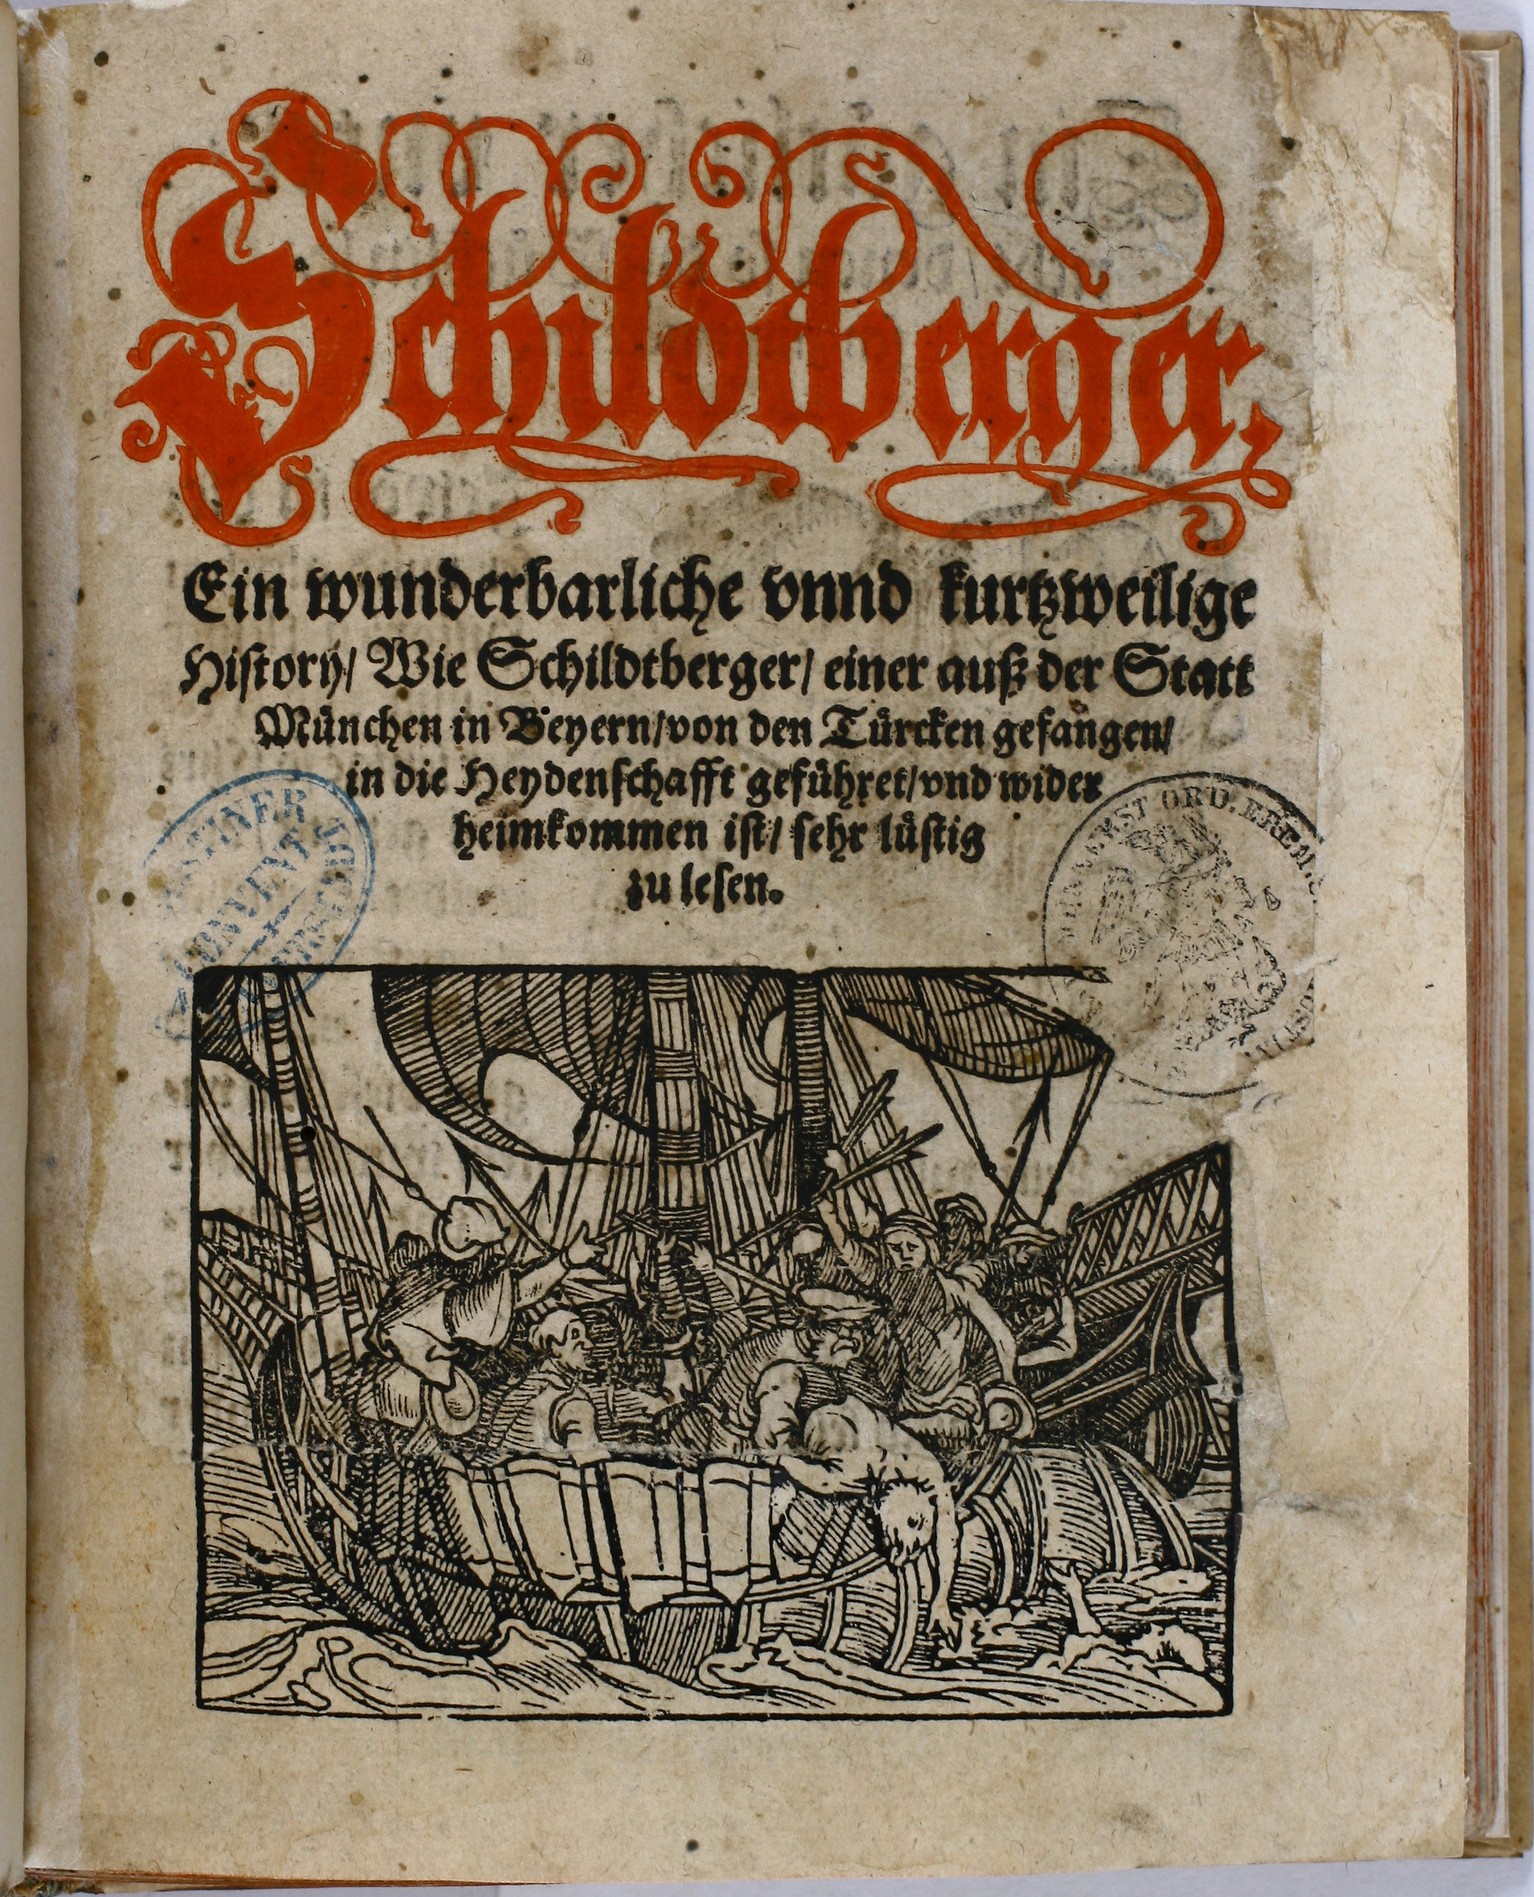 Schildtberger.
Ein wunderbarliche vnnd kurtzweilige
History/ Wie Schildtberger/ einer auß der Statt
München in Beyern/ von den Türcken gefangen/
in die Heydenschafft geführet/ vnd wider
heimkommen ist/ sehr lüstig
zu lesen.
CONVENT
ORD. EREM.